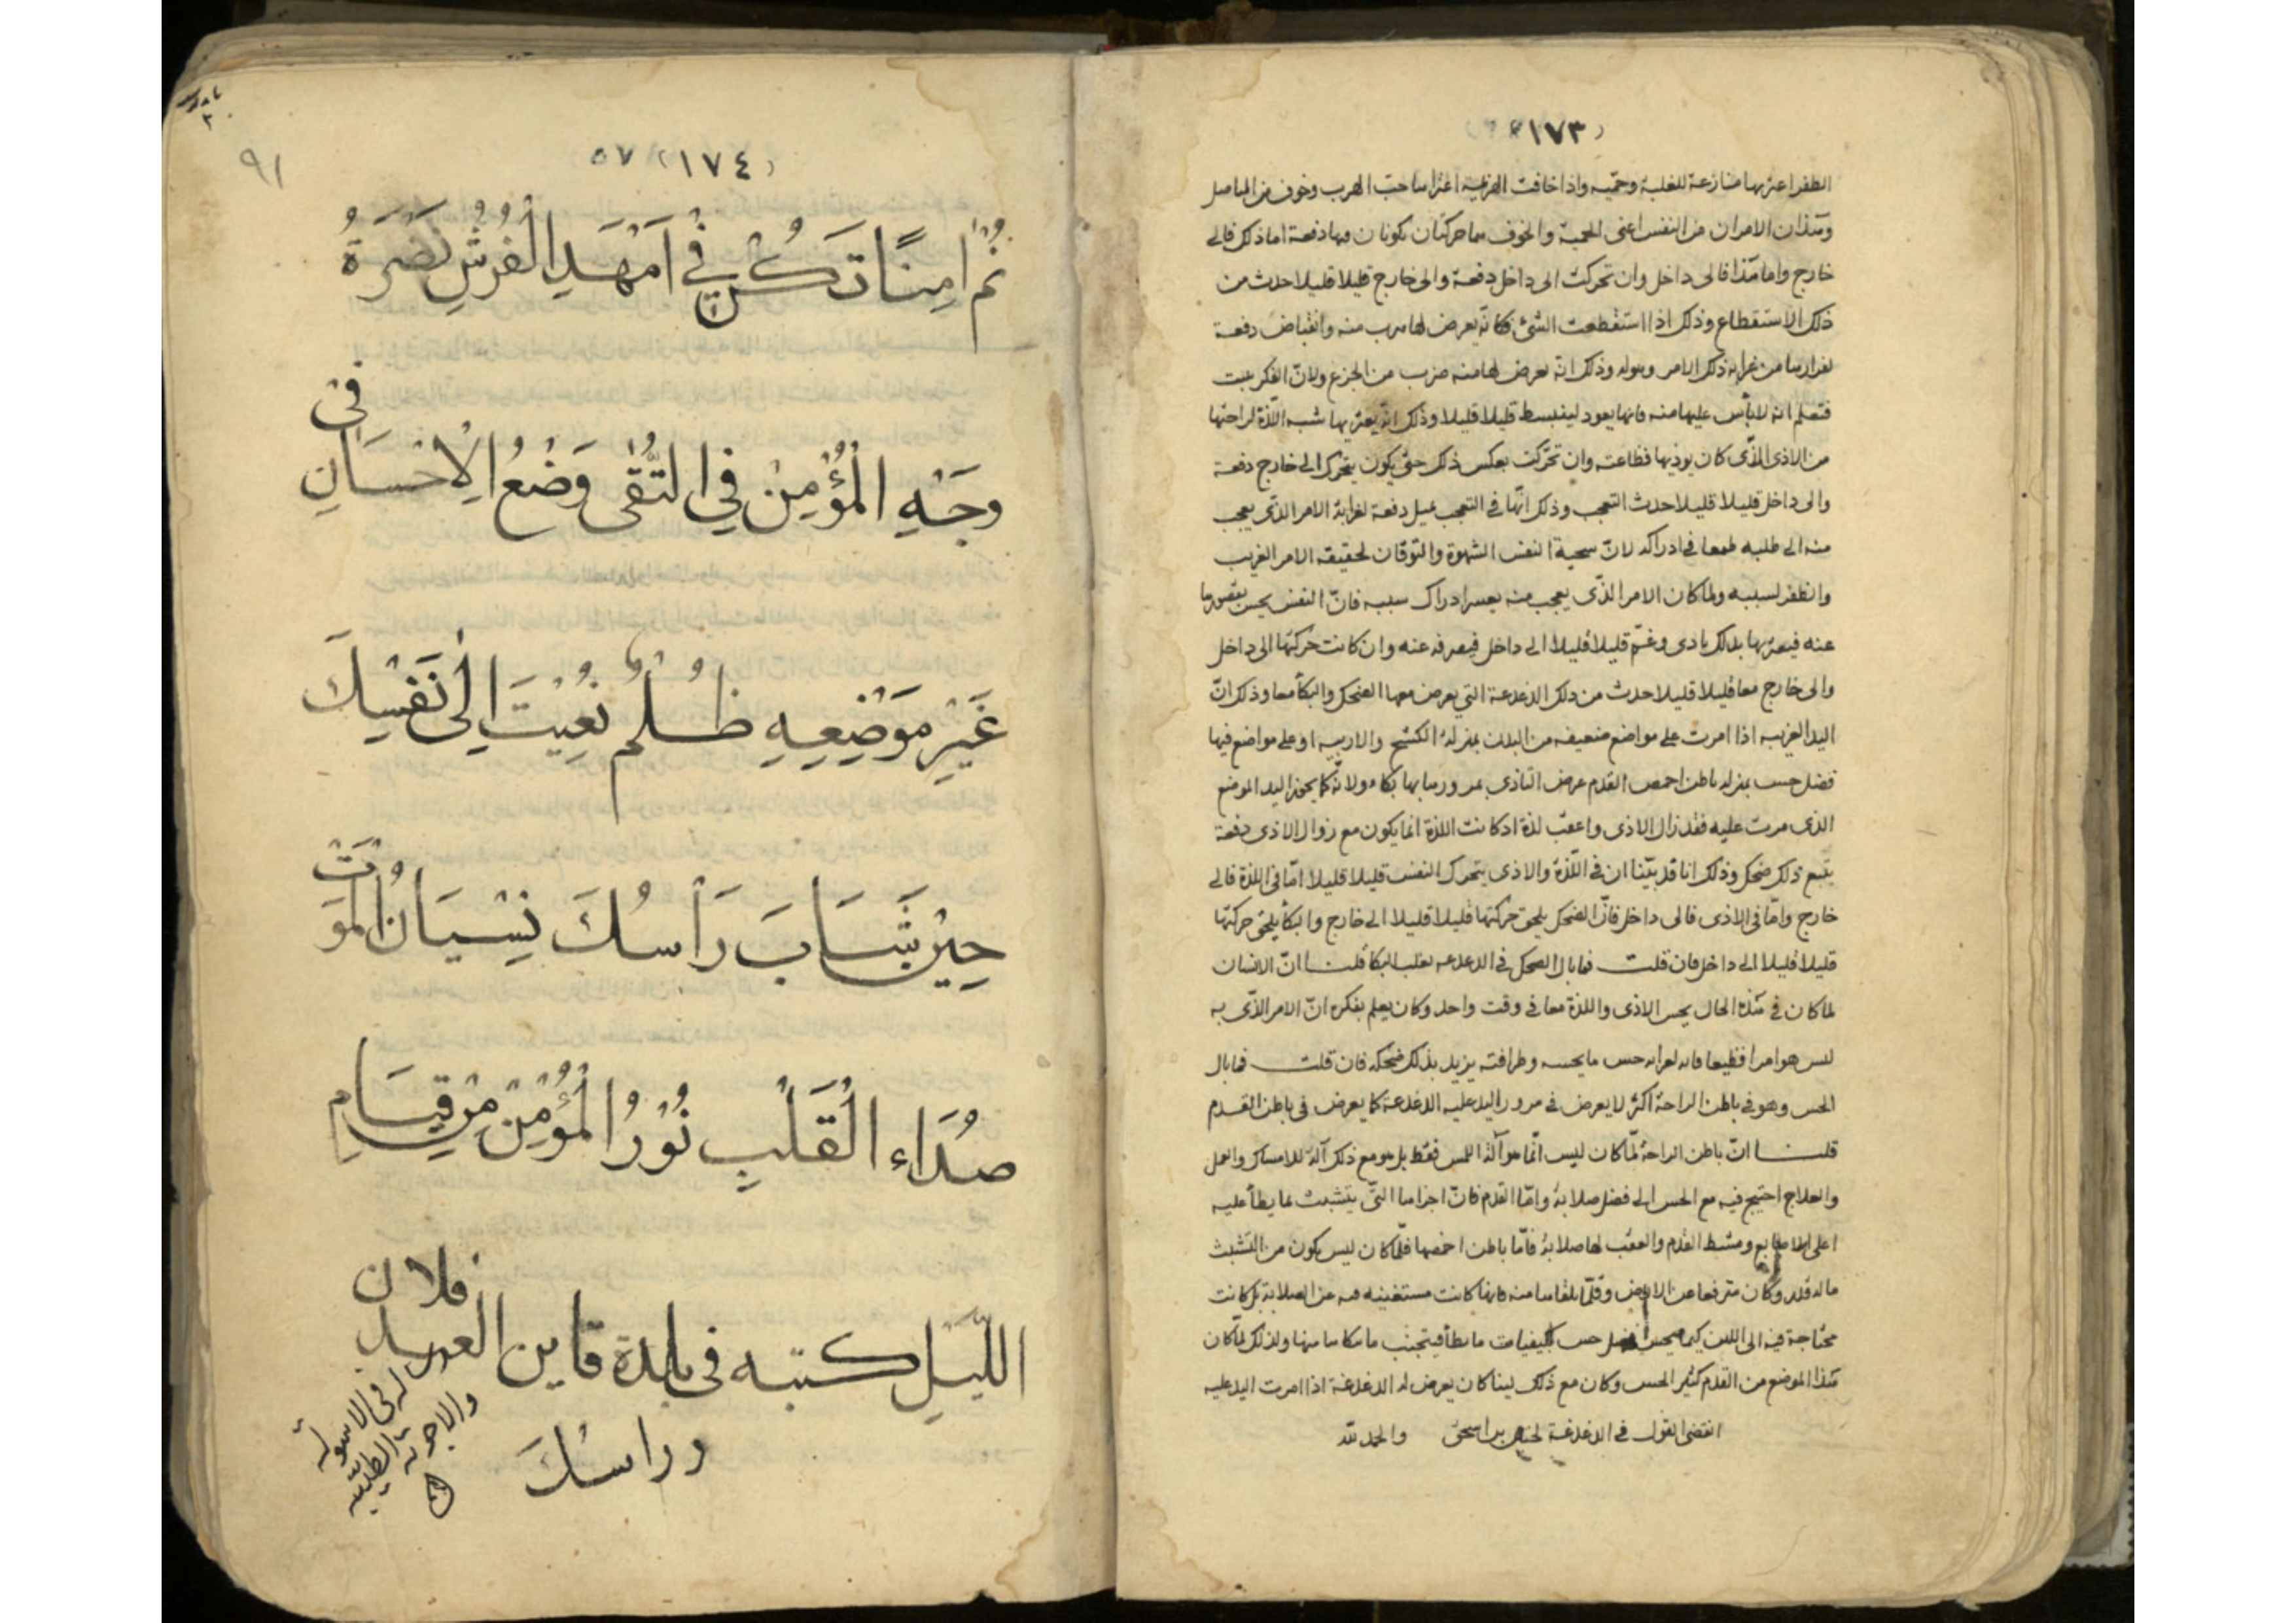 (١٧٣)
الظفر اعتريها منازعة للغلبة وحمية واذا خافت الهزيمة اعتراها حب الهرب وخوف من
وهذان الامران من النفس اعنى الحمية والخوف هما حركتان تكونان فيها دفعة اما ذلك فالى
خارج واما هذا فالى داخل وان تحركت الى داخل دفعة والى خارج قليلا قليلا حدث من
ذلك الاستقطاع وذلك اذا استفظعت الشئ فكانّه يعرض لها هرب منه وانقباض دفعة
من ذلك الامر وهوله وذلك انه يعرض لها منه ضرب من الجزع ولانّ الفكر يثبت
فتعلم انه لا بأس عليها منه فانها يعود لينبسط قليلا قليلا وذلك انّه يعتريها شبه اللّذة لراحتها
من الاذى الذّى كان يوذيها فظاعته وان تحرّكت بعكس ذلك حتى يكون يتحرك الى خارج دفعة
والى داخل قليلا قليلا حدث التعجب وذلك انّها فى التعجب تميل دفعة لغرابة الامر الذّى يعجب
منه الى طلبه طمعا فى ادراكه لانّ سجية النفس الشهوة والتوقان لحقيقه الامر الغريب
وانظفر لسببه ولما كان الامر الذّى يعجب منه يعسر ادراك سببه فانّ النفس يحس بقصورها
عنه فيعتريها بذلك تاذى وغمّ قليلا قليلا الى داخل فيصرفه عنه وان كانت حركتها الى داخل
والى خارج معا قليلا قليلا حدث من ذلك الدغدغة التى يعرض معها الضحك والبكأ معا وذلك انّ
اليد الغريبه اذا امرت على مواضع ضعيفه من البدن بمنزلة الكشح والاربيه او على مواضع فيها
فضل حس بمنزله باطن اخمص القدم عرض التاذى بمرورها بها بكاء ولانّه كما يجوز اليد الموضع
الذى مرت عليه فقد زال الاذى واعقب لذة اذ كانت اللذة انما يكون مع زوال الاذى دفعة
يتبع ذلك ضحك وذلك انا قد بيّنا ان فى اللّذة والاذى يتحرك النفس قليلا قليلا امّا فى اللذة فالى
خارج وامّا فى الاذى فالى داخل فانّ الضحك يلحق حركتها قليلا قليلا الى خارج والبكأ يلحق حركتها
قليلا قليلا الى داخل فان قلت فما بال الضحك فى الدغدغه يغلب البكأ قلنا انّ الانسان
لما كان فى هذه الحال يحس الاذى واللذة معا فى وقت واحد وكان يعلم بفكره انّ الامر الذّى به
ليس هو امرا فظيعا فانه لغرابه حس ما يحسه وطرافته يزيد بذلك ضحكه فان قلت فما بال
الحس وهو فى باطن الراحة اكثر لا يعرض فى مرور اليد عليه الدغدغة كما يعرض فى باطن القدم
قلنا انّ باطن الراحة لمّا كان ليس انّما هو آلة اللمس فقط بل هو مع ذلك آلة للامساك والعمل
والعلاج احتيج فيه مع الحس الى فضل صلابة وامّا القدم فانّ اجزاها التّى يتشبث بما يطأ عليه
اعلى الاصابع ومشط القدم والعقب لها صلابة فامّا باطن اخمصها فلمّا كان ليس يكون من التشبث
ماله قدر وكان مترفعا عن الارض وقلّما يلقاها منه فانها كانت مستغنيه فيه عن الصلابة بل كانت
محتاجة فيه الى اللين كيما يحس حس الكيفيات ما يطأ فيتجنب ما ينكاها منها ولذلك لمّا كان
هذا الموضع من القدم كثير الحس وكان مع ذلك لينا كان يعرض له الدغدغة اذا امرت اليد عليه
انقضى القول فى الدغدغة لحنين بن اسحق والحمد لله
٩١
(١٧٤) ٥٧
نُمْ امِنًا تَكُنْ فِي اَمْهَدِ الْفُرُشِ نَضْرَةُ
وَجْهِ الْمُؤْمِنْ فِي التُّقٰى وَضْعُ الْاِحْسَانِ فِي
غَيْرِ مَوْضِعِهِ ظُلْمٌ نُعِيْتَ اِلٰى نَفْسِكَ
حِيْنَ شَابَ رَأْسُكَ نِسْيَانُ الْمَوْتْ
صُدَاء الْقَلْبِ نُوْرُ الْمُؤْمِنْ مِنْ قِيَامِ
اللَّيْلِ كتبه فى بلدة قاين العبد فلان
وراسُكَ
فى الاسولة
والاجوبة الطبيّة